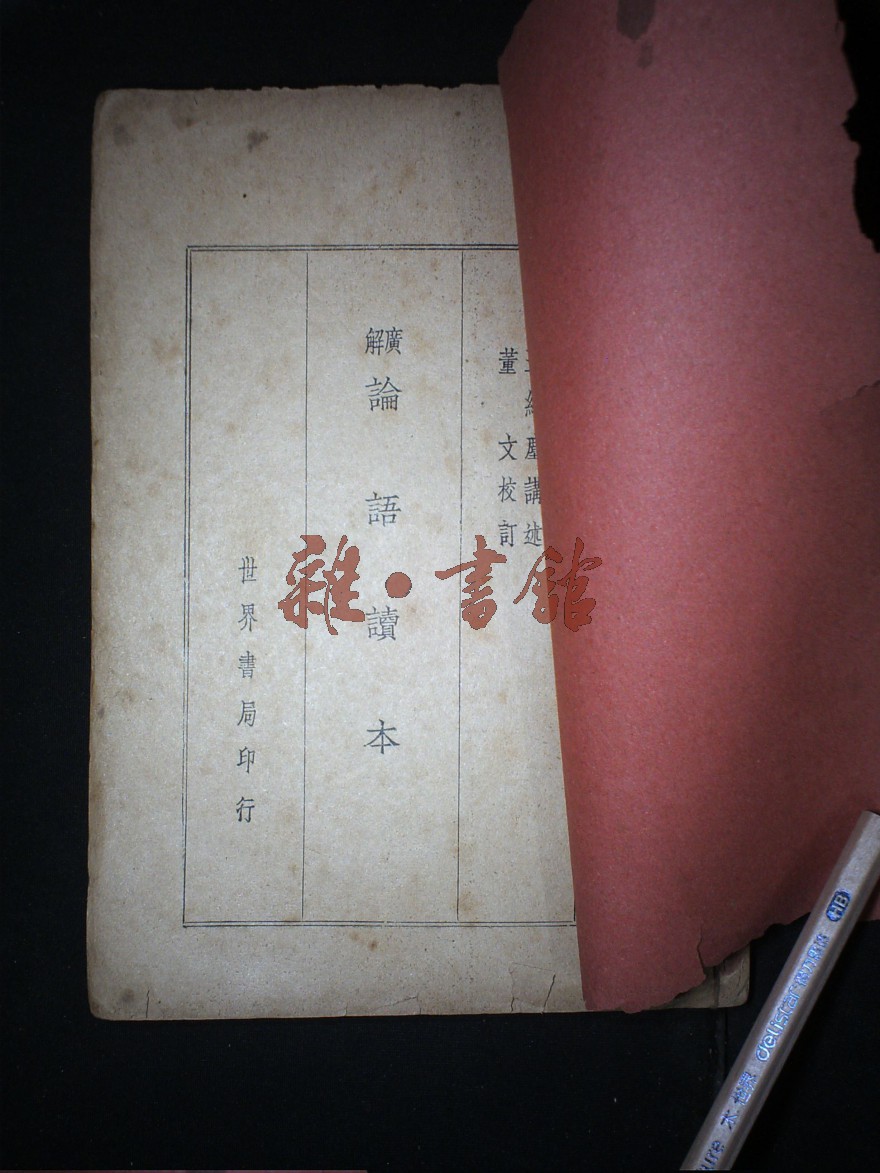 講述
董文校訂
廣解
論語讀本
世界書局印行
雜·書館
HB
delistar